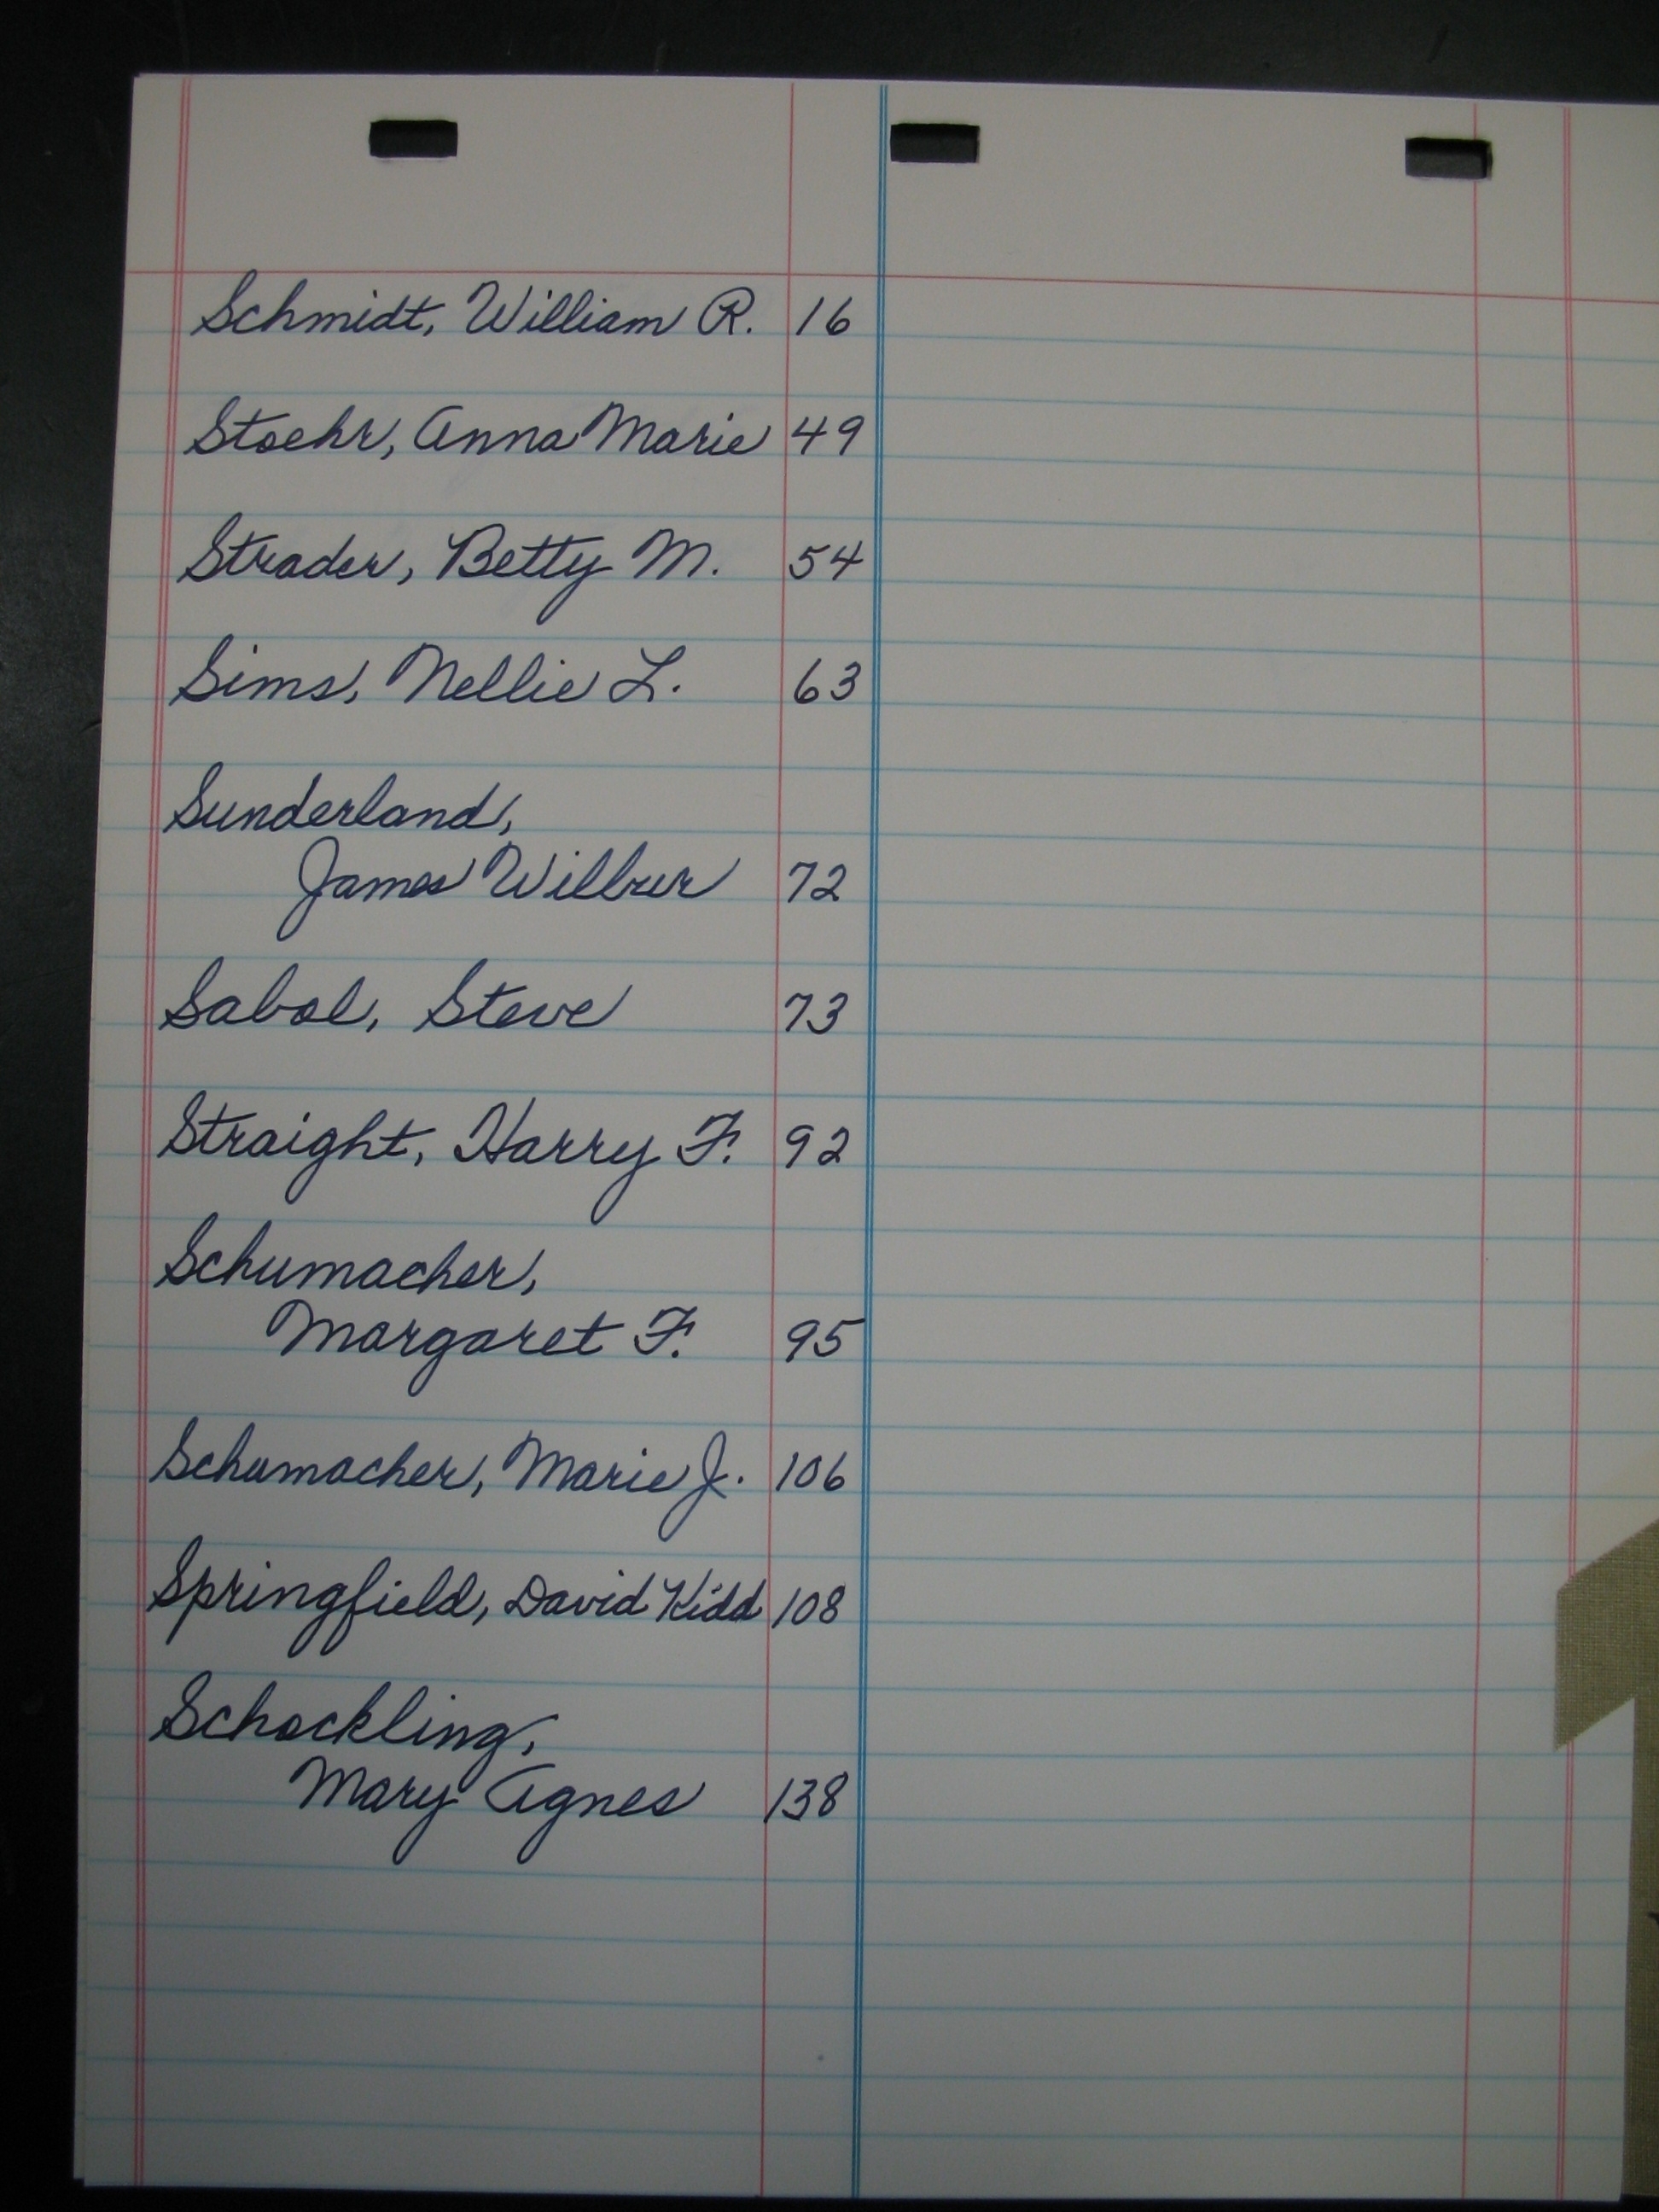 Schmidt, William R. 16
Stoehr, Anna Marie 49
Strader, Betty M. 54
Sims, Nellie L. 63
Sunderland,
James Wilbur 72
Sabol, Steve 73
Straight, Harry F. 92
Schumacher,
Margaret F. 95
Schumacher, Marie J. 106
Springfield, David Kidd 108
Schockling,
Mary Agnes 138